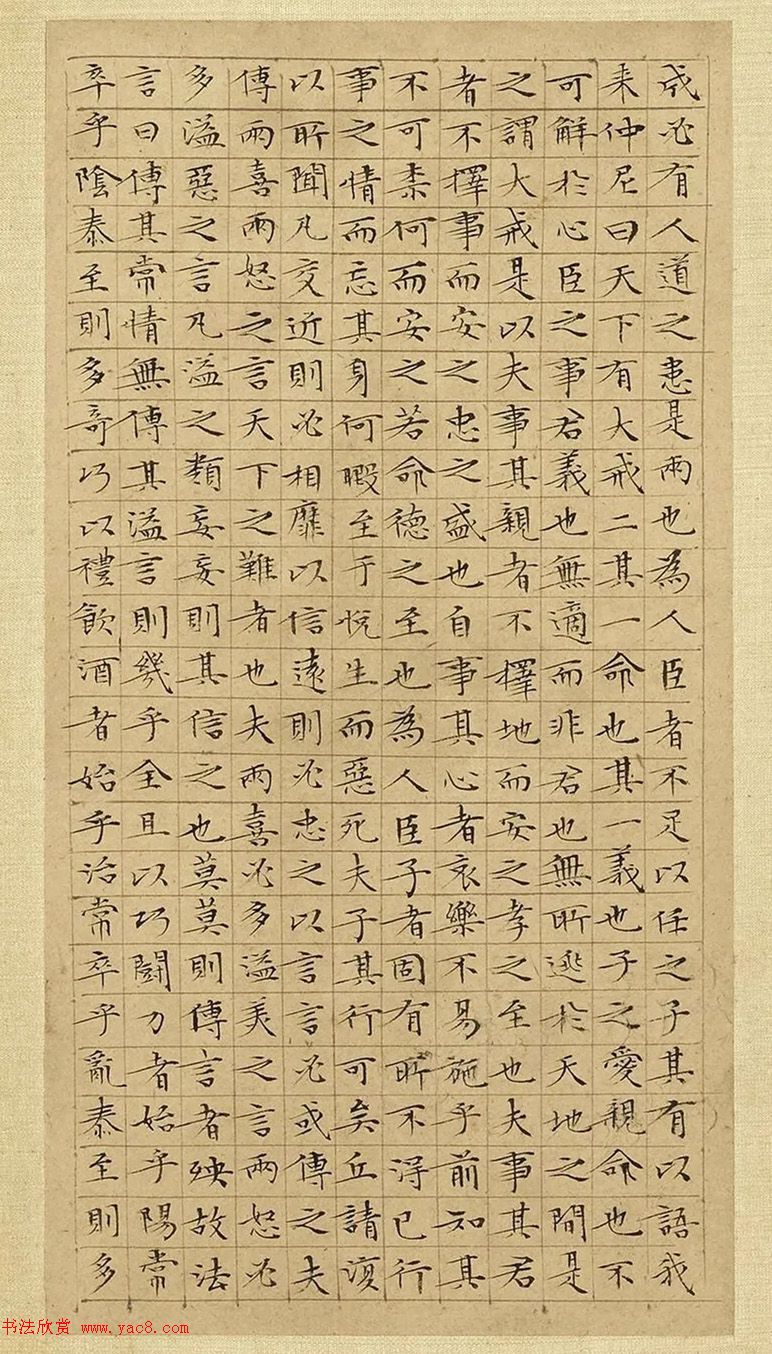 成必有人道之患是兩也為人臣者不足以任之子其有以語我
来仲尼曰天下有大戒二其一命也其一義也子之愛親命也不
可解於心臣之事君義也無適而非君也無所逃於天地之間是
之謂大戒是以夫事其親者不擇地而安之孝之至也夫事其君
者不擇事而安之忠之盛也自事其心者哀樂不易施乎前知其
不可柰何而安之若命德之至也為人臣子者固有所不得已行
事之情而忘其身何暇至于悅生而惡死夫子其行可矣丘請復
以所聞凡交近則必相靡以信遠則必忠之以言言必或傳之夫
傳兩喜兩怒之言天下之難者也夫兩喜必多溢美之言兩怒必
多溢惡之言凡溢之類妄妄則其信之也莫莫則傳言者殃故法
言曰傳其常情無傳其溢言則幾乎全且以巧鬭力者始乎陽常
卒乎陰泰至則多奇巧以禮飲酒者始乎治常卒乎亂泰至則多
书法欣赏 www.yac8.com